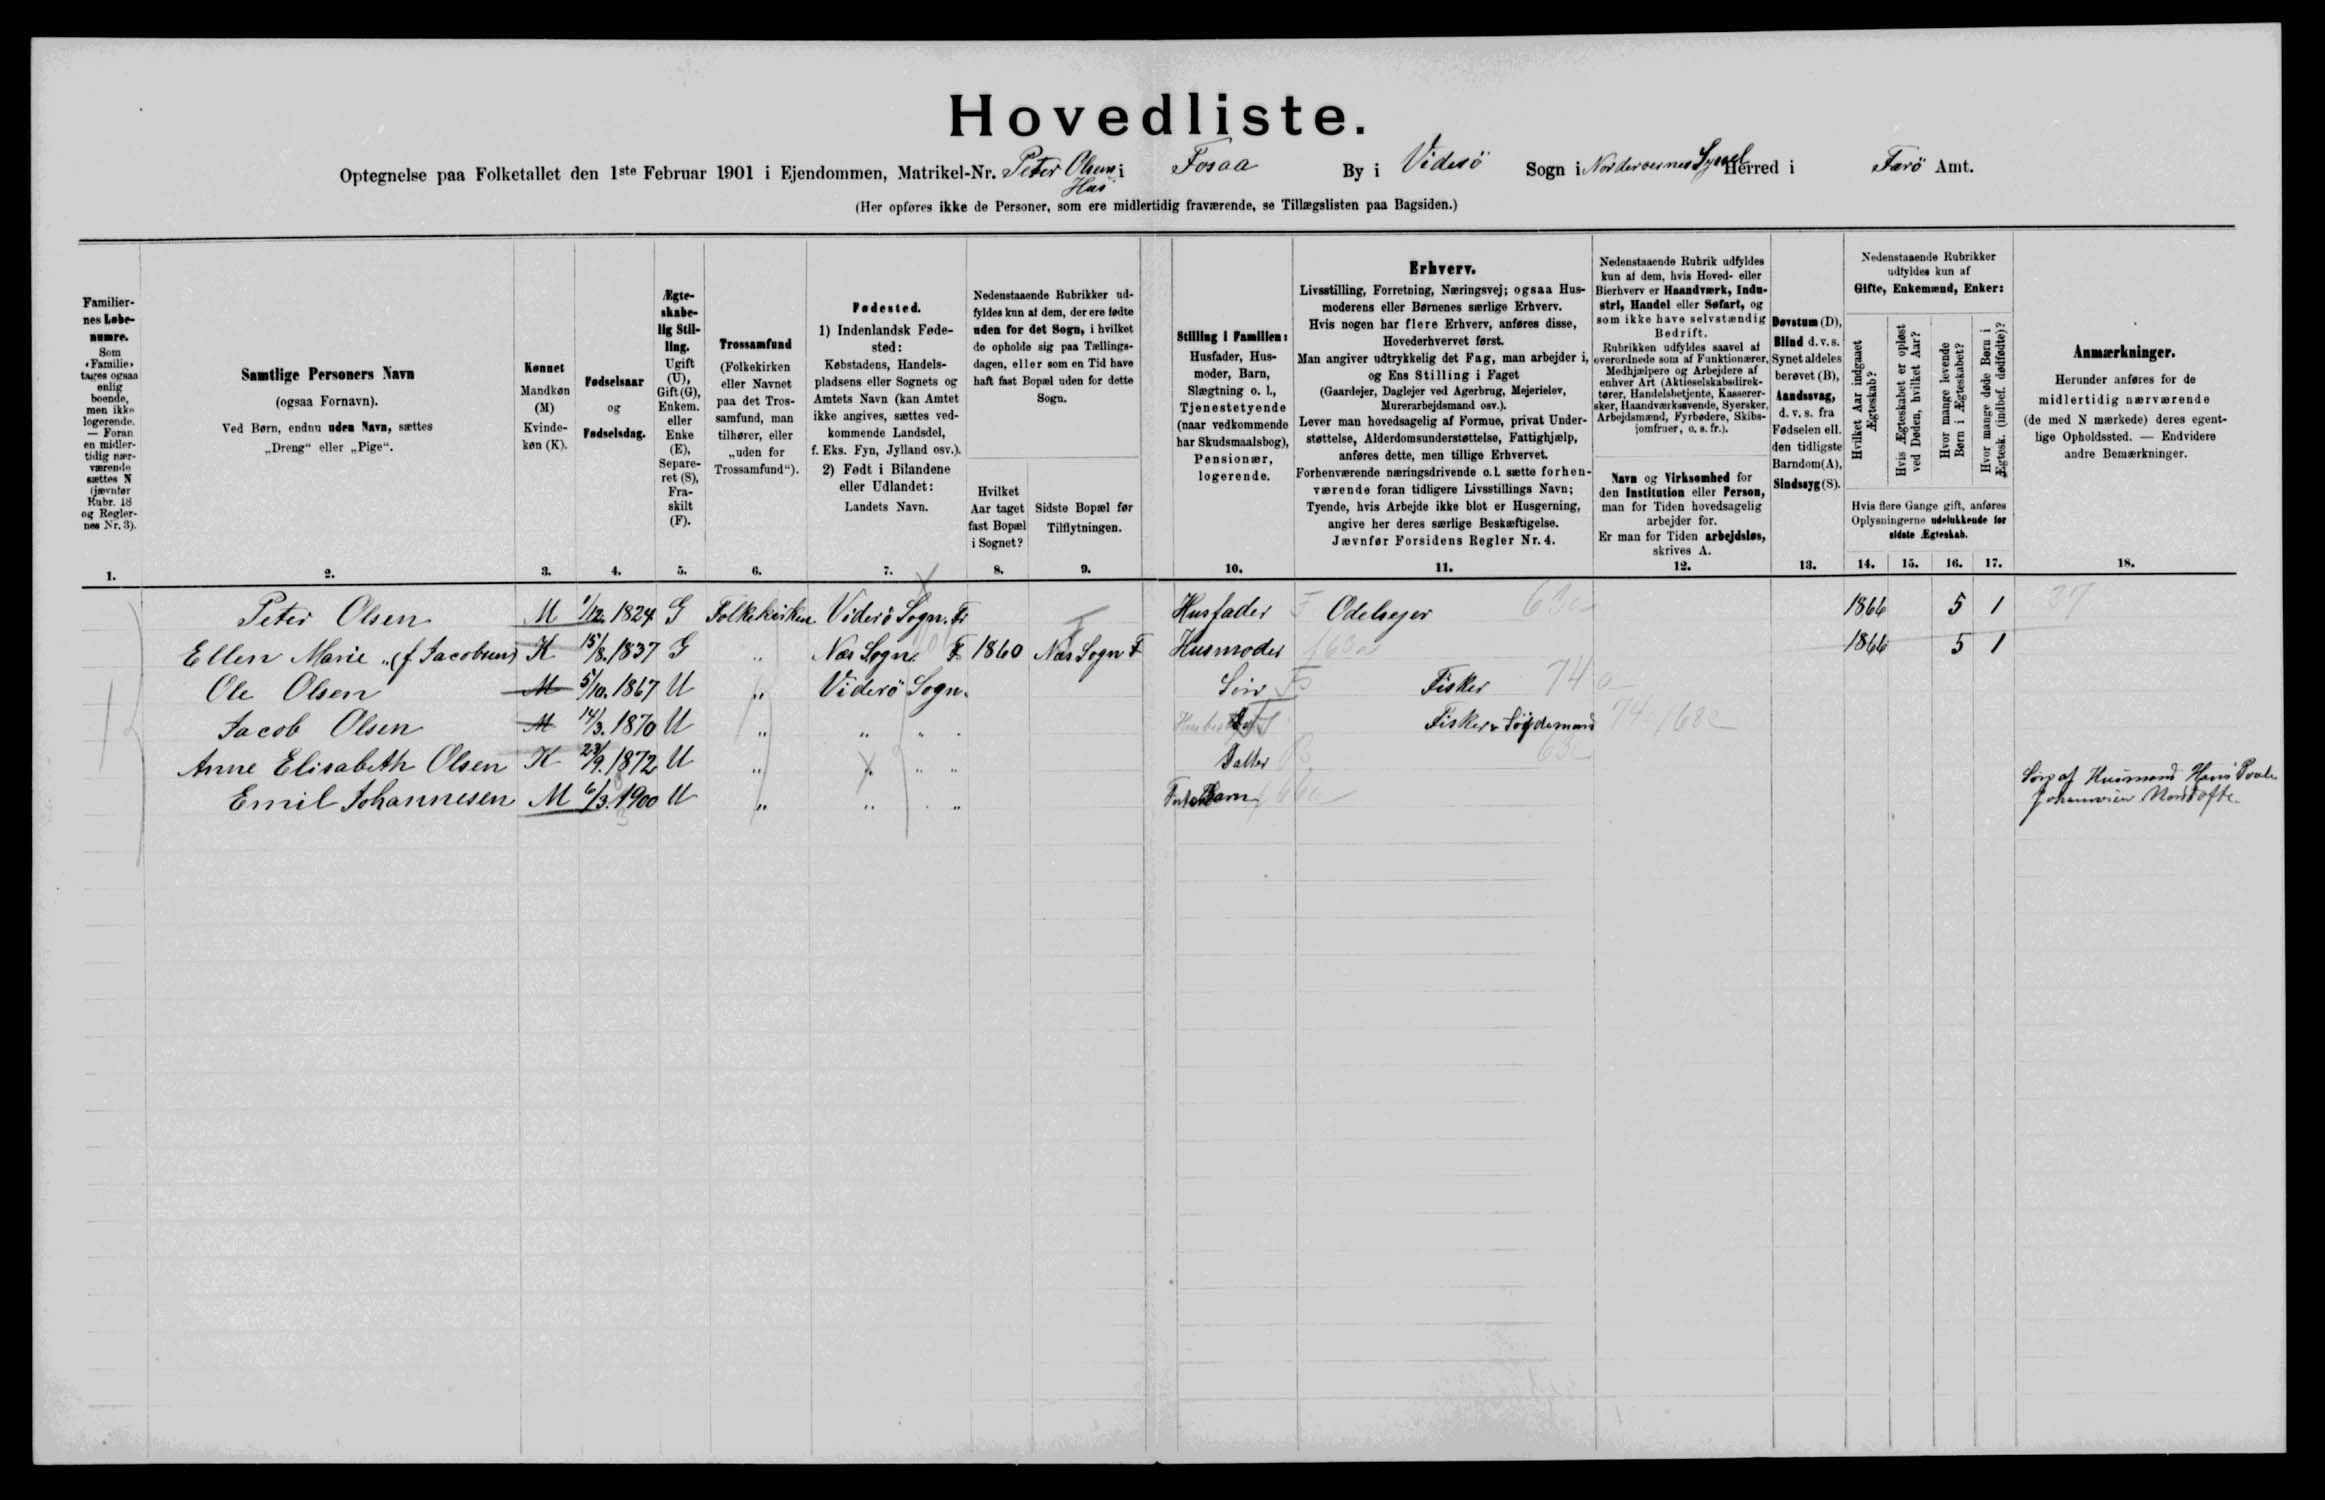 Hovedliste.
Optegnelse paa Folketallet den 1ste Februar 1901 i Ejendommen, Matrikel-Nr. Peter Olsens Hus i Fosaa By i Viderö Sogn i Norderoernes Syssel Herred i Færö Amt.
(Her opføres ikke de Personer, som ere midlertidig fraværende, se Tillægslisten paa Bagsiden.)
Familiernes Løbenumre.
Som «Familie» tages ogsaa enlig boende, men ikke logerende. — Foran en midlertidig nærværende sættes N (jævnfør Rubr. 18 og Reglernes Nr. 3).
Samtlige Personers Navn
(ogsaa Fornavn).
Ved Børn, endnu uden Navn, sættes
„Dreng“ eller „Pige“.
Kønnet
Mandkøn (M)
Kvindekøn (K).
Fødselsaar
og
Fødselsdag.
Ægteskabelig Stilling.
Ugift (U), Gift (G), Enkem. eller Enke (E), Separeret (S), Fraskilt (F).
Trossamfund
(Folkekirken eller Navnet paa det Trossamfund, man tilhører, eller „uden for Trossamfund“).
Fødested.
1) Indenlandsk Fødested:
Købstadens, Handelspladsens eller Sognets og Amtets Navn (kan Amtet ikke angives, sættes vedkommende Landsdel, f. Eks. Fyn, Jylland osv.).
2) Født i Bilandene eller Udlandet:
Landets Navn.
Nedenstaaende Rubrikker udfyldes kun af dem, der ere fødte uden for det Sogn, i hvilket de opholde sig paa Tællingsdagen, eller som en Tid have haft fast Bopæl uden for dette Sogn.
Hvilket Aar taget fast Bopæl i Sognet?
Sidste Bopæl før Tilflytningen.
Stilling i Familien:
Husfader, Husmoder, Barn, Slægtning o. l., Tjenestetyende (naar vedkommende har Skudsmaalsbog), Pensionær, logerende.
Erhverv.
Livsstilling, Forretning, Næringsvej; ogsaa Husmoderens eller Børnenes særlige Erhverv.
Hvis nogen har flere Erhverv, anføres disse, Hovederhvervet først.
Man angiver udtrykkelig det Fag, man arbejder i, og Ens Stilling i Faget
(Gaardejer, Daglejer ved Agerbrug, Mejerielev, Murerarbejdsmand osv.).
Lever man hovedsagelig af Formue, privat Understøttelse, Alderdomsunderstøttelse, Fattighjælp, anføres dette, men tillige Erhvervet.
Forhenværende næringsdrivende o. l. sætte forhenværende foran tidligere Livsstillings Navn; Tyende, hvis Arbejde ikke blot er Husgerning, angive her deres særlige Beskæftigelse.
Jævnfør Forsidens Regler Nr. 4.
Nedenstaaende Rubrik udfyldes kun af dem, hvis Hoved- eller Bierhverv er Haandværk, Industri, Handel eller Søfart, og som ikke have selvstændig Bedrift.
Rubrikken udfyldes saavel af overordnede som af Funktionærer, Medhjælpere og Arbejdere af enhver Art (Aktieselskabsdirektører, Handelsbetjente, Kasserersker, Haandværkssvende, Syersker, Arbejdsmænd, Fyrbødere, Skibsjomfruer, o. s. fr.).
Navn og Virksomhed for den Institution eller Person, man for Tiden hovedsagelig arbejder for.
Er man for Tiden arbejdsløs, skrives A.
Døvstum (D), Blind d. v. s. Synet aldeles berøvet (B), Aandssvag, d. v. s. fra Fødselen ell. den tidligste Barndom (A), Sindssyg (S).
Nedenstaaende Rubrikker udfyldes kun af
Gifte, Enkemænd, Enker:
Hvilket Aar indgaaet Ægteskab?
Hvis Ægteskabet er opløst ved Døden, hvilket Aar?
Hvor mange levende Børn i Ægteskabet?
Hvor mange døde Børn i Ægtesk. (indbef. dødfødte)?
Hvis flere Gange gift, anføres Oplysningerne udelukkende for sidste Ægteskab.
Anmærkninger.
Herunder anføres for de midlertidig nærværende (de med N mærkede) deres egentlige Opholdssted. — Endvidere andre Bemærkninger.
1. 2. 3. 4. 5. 6. 7. 8. 9. 10. 11. 12. 13. 14. 15. 16. 17. 18.
Peter Olsen M 1/12. 1824 G Folkekirken Viderö Sogn. Fr Husfader F Odelsejer 63a 1866 5 1 37
Ellen Marie „ (f Jacobsen) K 15/8. 1837 G „ Næs Sogn. F 1860 Næs Sogn F Husmoder 163a 1866 5 1
Ole Olsen M 5/10. 1867 U „ Viderö Sogn. Søn Fisker 74
Jacob Olsen M 14/3. 1870 U „ „ „ Fisker 74 168c
Anne Elisabeth Olsen K 23/9. 1872 U „ „ „ „ Datter 63
Emil Johannesen M 6/3. 1900 U „ „ „ Barn
Søn af Husmand Hans